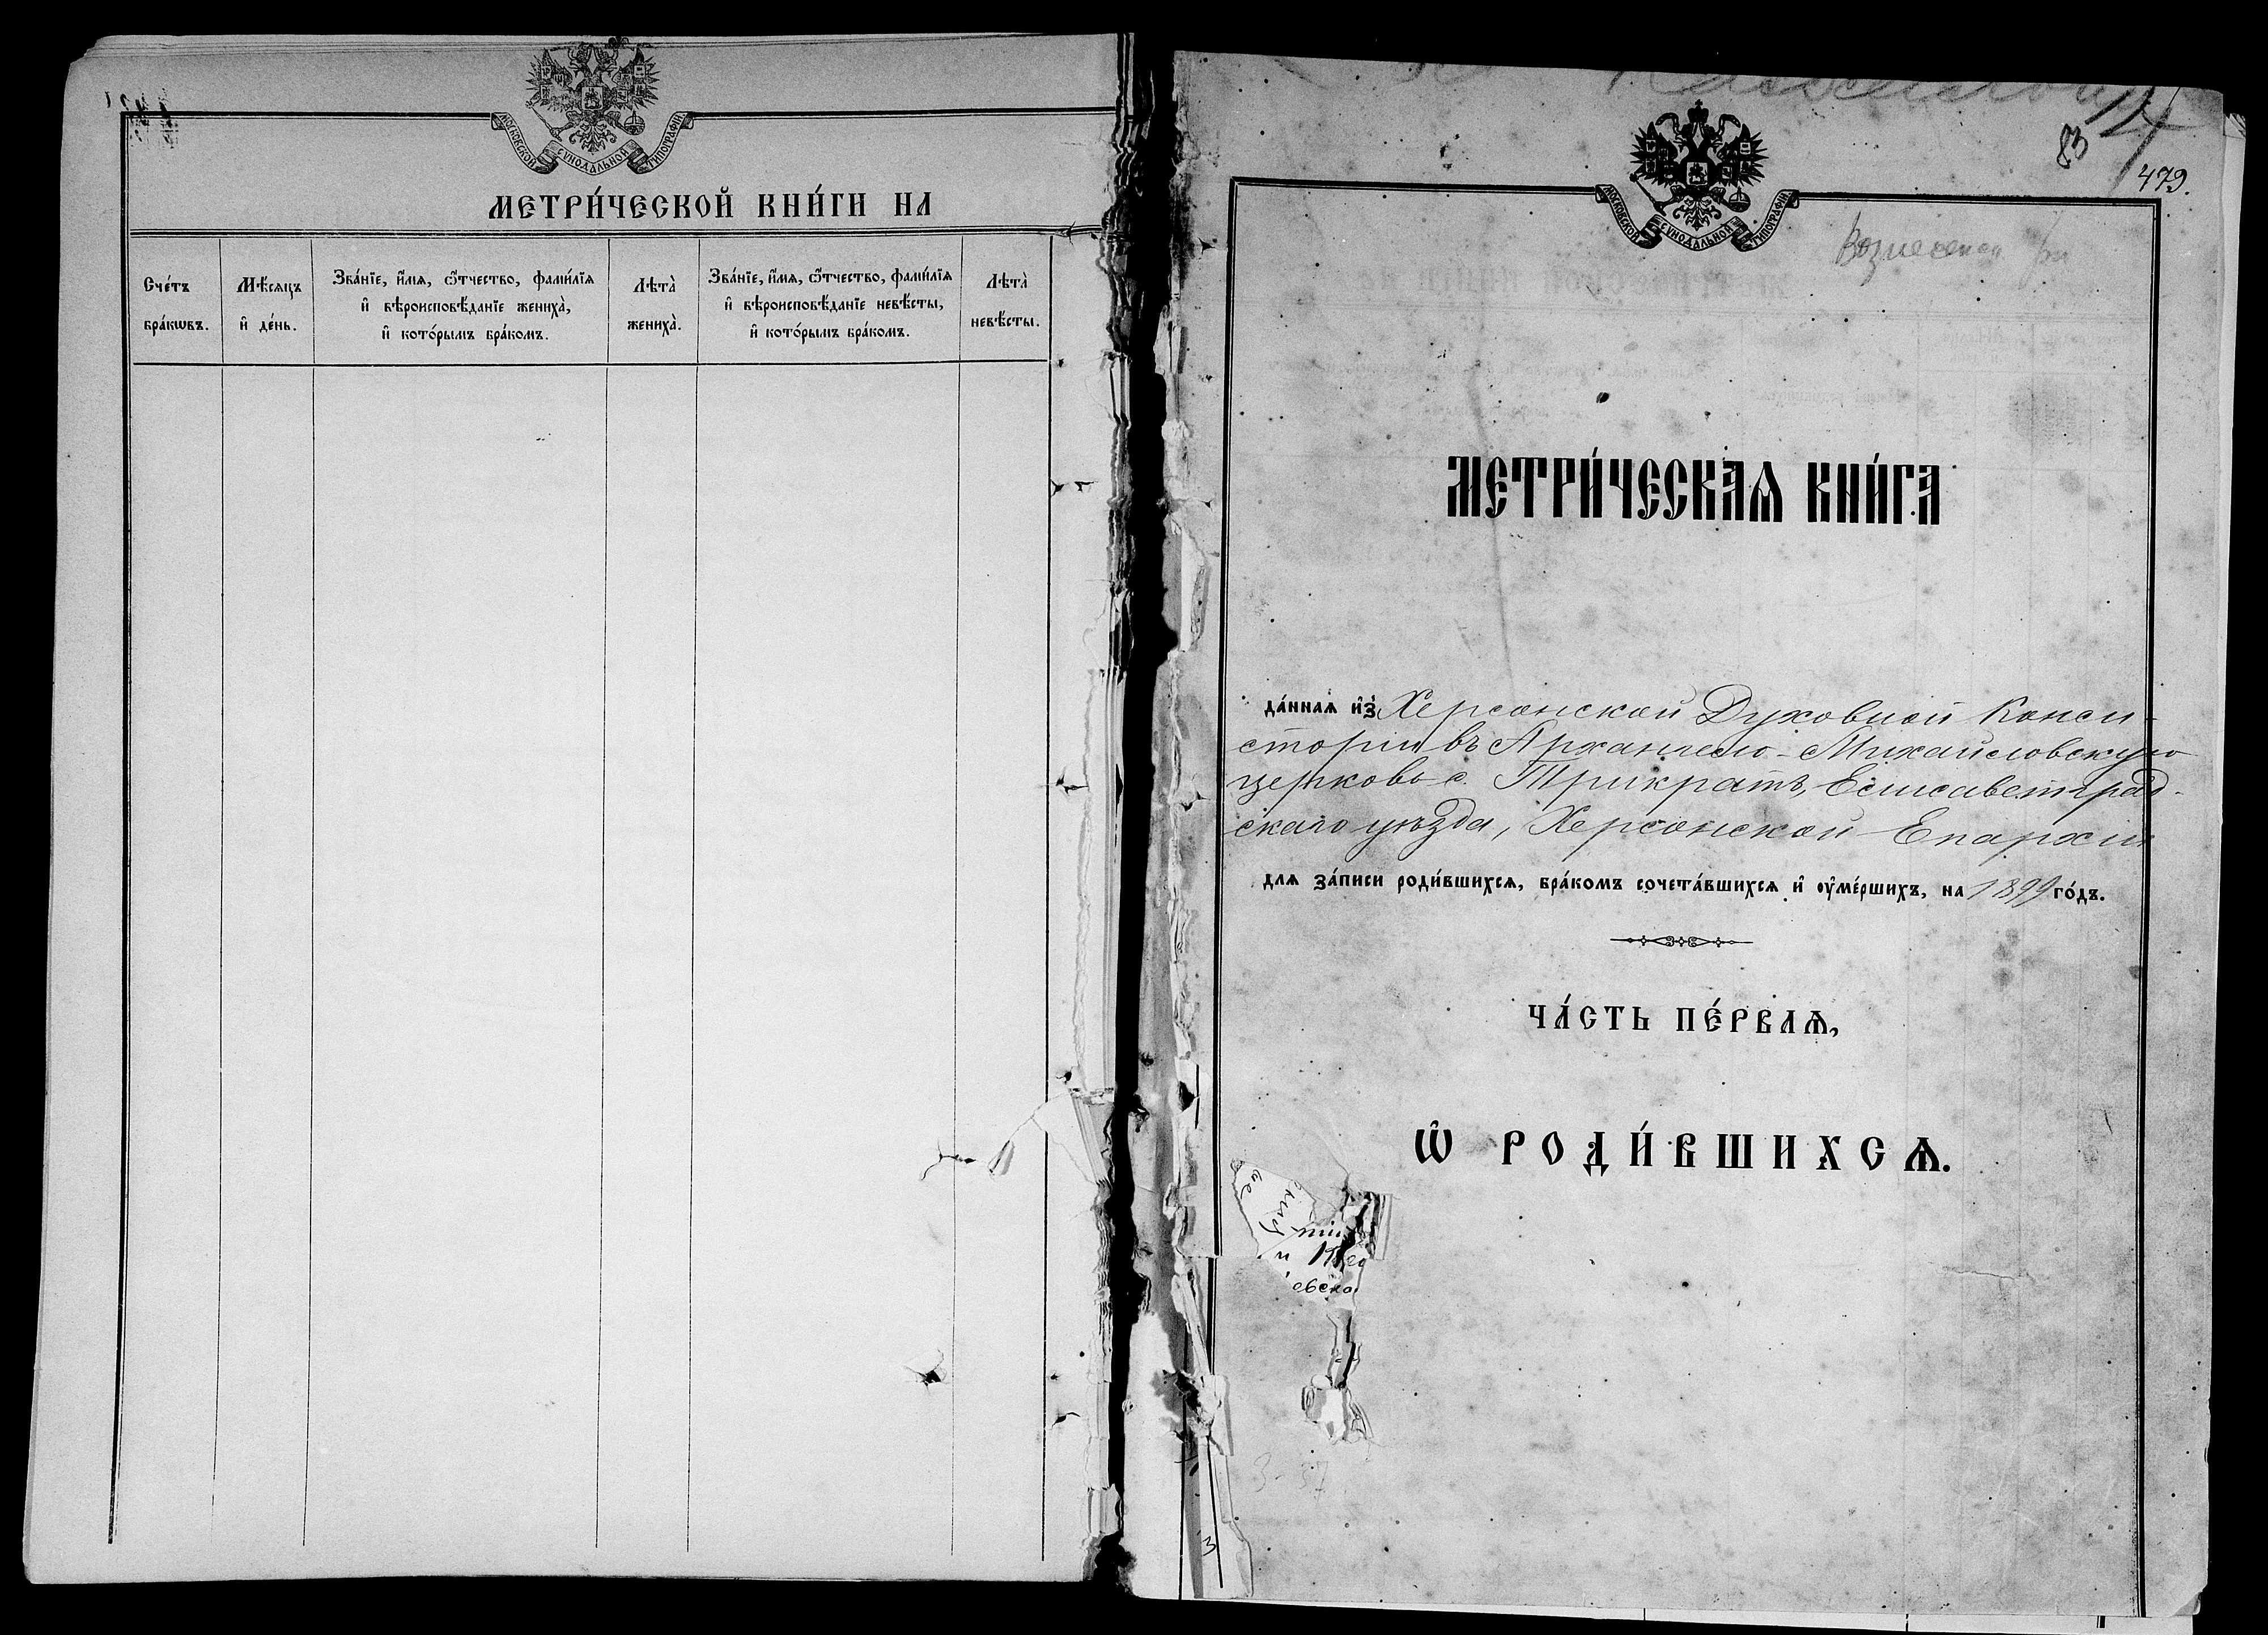 МОСКОВСКОЙ СѴНОДАЛЬНОЙ ТИПОГРАФІИ
МЕТРИ́ЧЕСКОЙ КНИ́ГИ НА
Сче́тъ бра́кѡвъ.
Мѣ́сяцъ и҆ де́нь.
Зва́нїе, и҆́мѧ, ѻ҆́тчество, фами́лїѧ
и҆ вѣроисповѣ́данїе жениха̀,
и҆ кото́рымъ бра́комъ.
Лѣта̀ жениха̀.
Зва́нїе, и҆́мѧ, ѻ҆́тчество, фами́лїѧ
и҆ вѣроисповѣ́данїе невѣ́сты,
и҆ кото́рымъ бра́комъ.
Лѣта̀ невѣ́сты.
83
479.
МОСКОВСКОЙ СѴНОДАЛЬНОЙ ТИПОГРАФІИ
МЕТРИ́ЧЕСКАѦ КНИ́ГА
да́ннаѧ и҆з̾ Херсонской Духовной Конси-
сторіи въ Архангело-Михайловскую
церковь с. Трикратъ, Елисаветград-
скаго уѣзда, Херсонской Епархіи
для за́писи роди́вшихсѧ, бра́комъ сочета́вшихсѧ и҆ оу҆ме́ршихъ, на 1899 го́дъ.
ЧА́СТЬ ПЕ́РВАѦ,
Ѡ҆ РОДИ́ВШИХСѦ.
евско
3-37
3